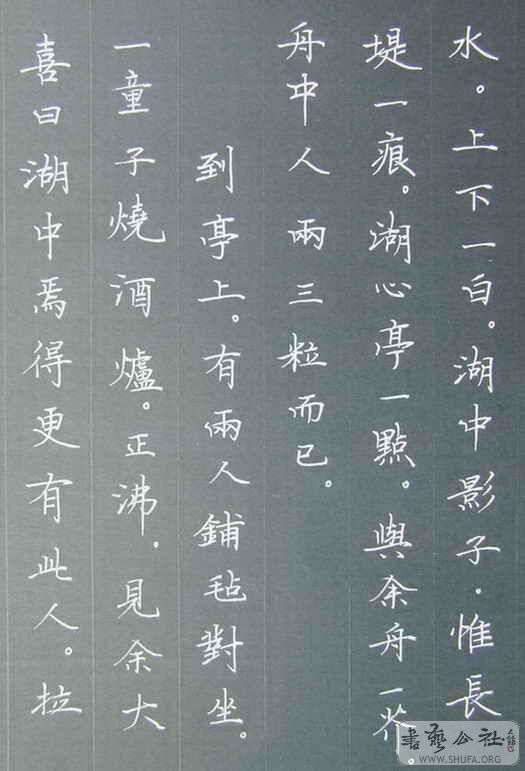 水。上下一白。湖中影子。惟長
堤一痕。湖心亭一點。與余舟一芥。
舟中人兩三粒而已。
到亭上。有兩人鋪毡對坐。
一童子燒酒爐。正沸。見余大
喜曰湖中焉得更有此人。拉
書藝公社
WWW.SHUFA.ORG